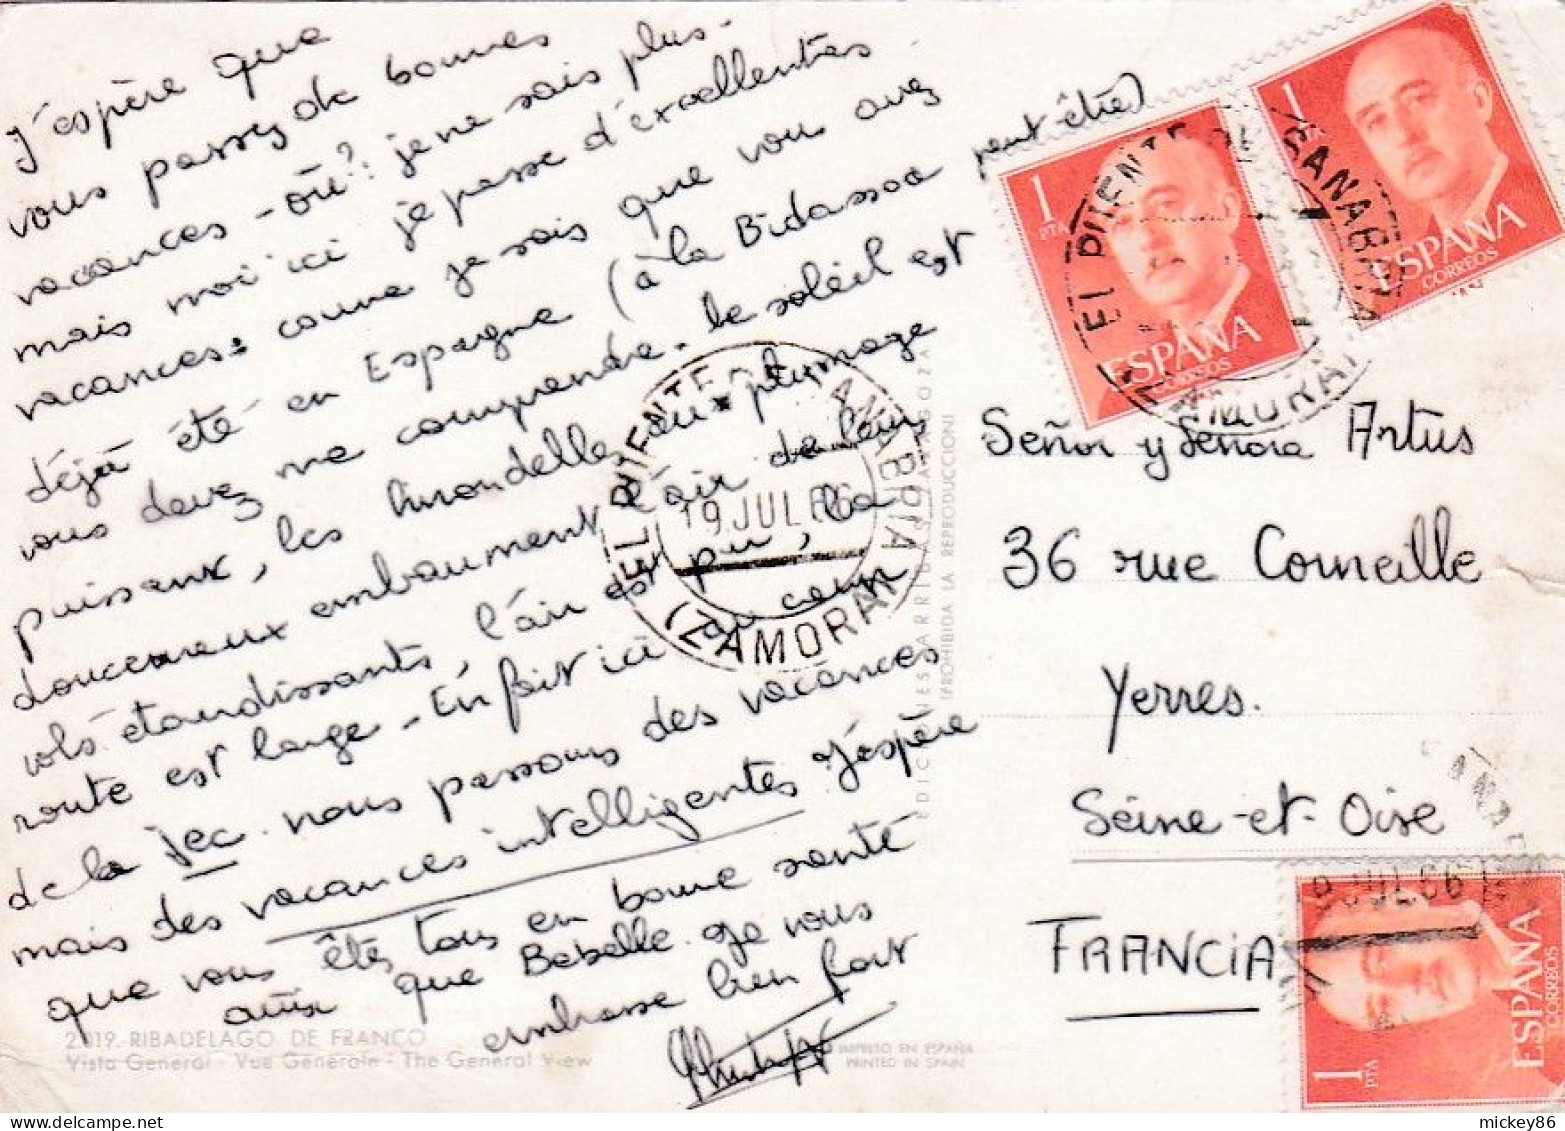 J'espère que
vous passez de bonnes
vacances - où? je ne sais plus -
mais moi ici je passe d'excellentes
vacances comme je sais que vous avez
déjà été en Espagne (à la Bidassoa peut être)
vous devez me comprendre. le soleil est
puissant, les hirondelles au plumage
doucereux embaument l'air de leurs
vols étourdissants, l'air est pur, la
route est large - En fait ici au camp
de la Jec nous passons des vacances
mais des vacances intelligentes J'espère
que vous êtes tous en bonne santé
ainsi que Babelle. Je vous
embrasse bien fort
1 PTA
ESPAÑA
CORREOS
1
ESPAÑA
CORREOS
EL PUENTE DE SANABRIA
(ZAMORA)
EL PUENTE DE SANABRIA
19 JUL 66
(ZAMORA)
Señor y Señora Artus
36 rue Corneille
Yerres.
Seine-et-Oise
FRANCIA
19 JUL 66
1 PTA
ESPAÑA
CORREOS
EDICIONES ARRIBAS ZARAGOZA
(PROHIBIDA LA REPRODUCCION)
2.019. RIBADELAGO DE FRANCO
Vista General Vue Générale - The General View
IMPRESO EN ESPAÑA
PRINTED IN SPAIN
mickey86